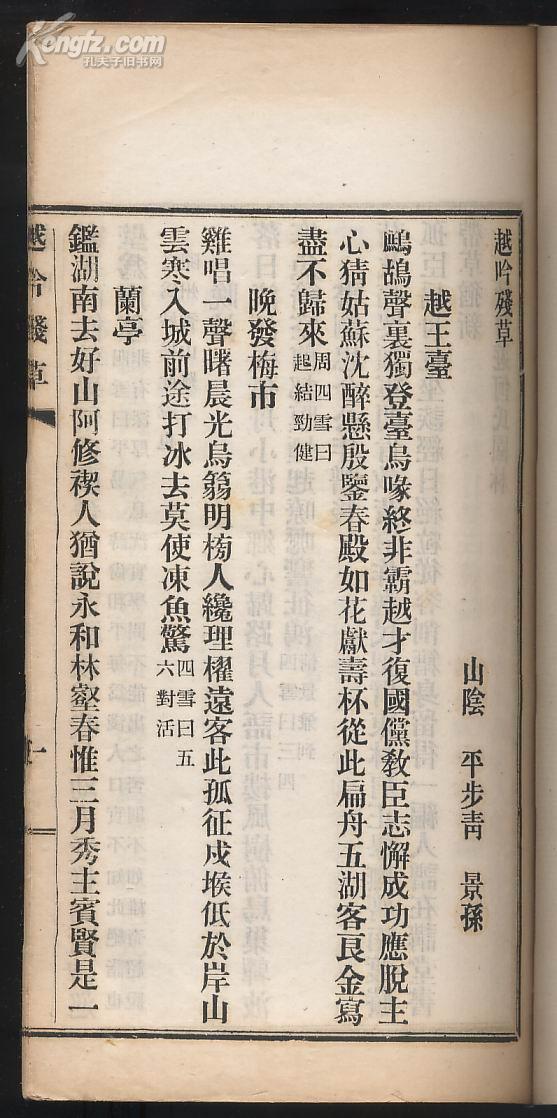 Kongfz.com
孔夫子旧书网
越吟殘草
山陰　平步青　景孫
越王臺
鷓鴣聲裏獨登臺烏喙終非霸越才復國儻教臣志懈成功應脫主
心猜姑蘇沈醉懸殷鑒春殿如花獻壽杯從此扁舟五湖客良金寫
盡不歸來周四雪曰
起結勁健
晚發梅市
雞唱一聲曙晨光烏篛明榜人纔理櫂遠客此孤征戍堠低於岸山
雲寒入城前途打冰去莫使凍魚驚四雪曰五
六對活
蘭亭
鑑湖南去好山阿修禊人猶說永和林壑春惟三月秀主賓賢是一
越吟殘草
一